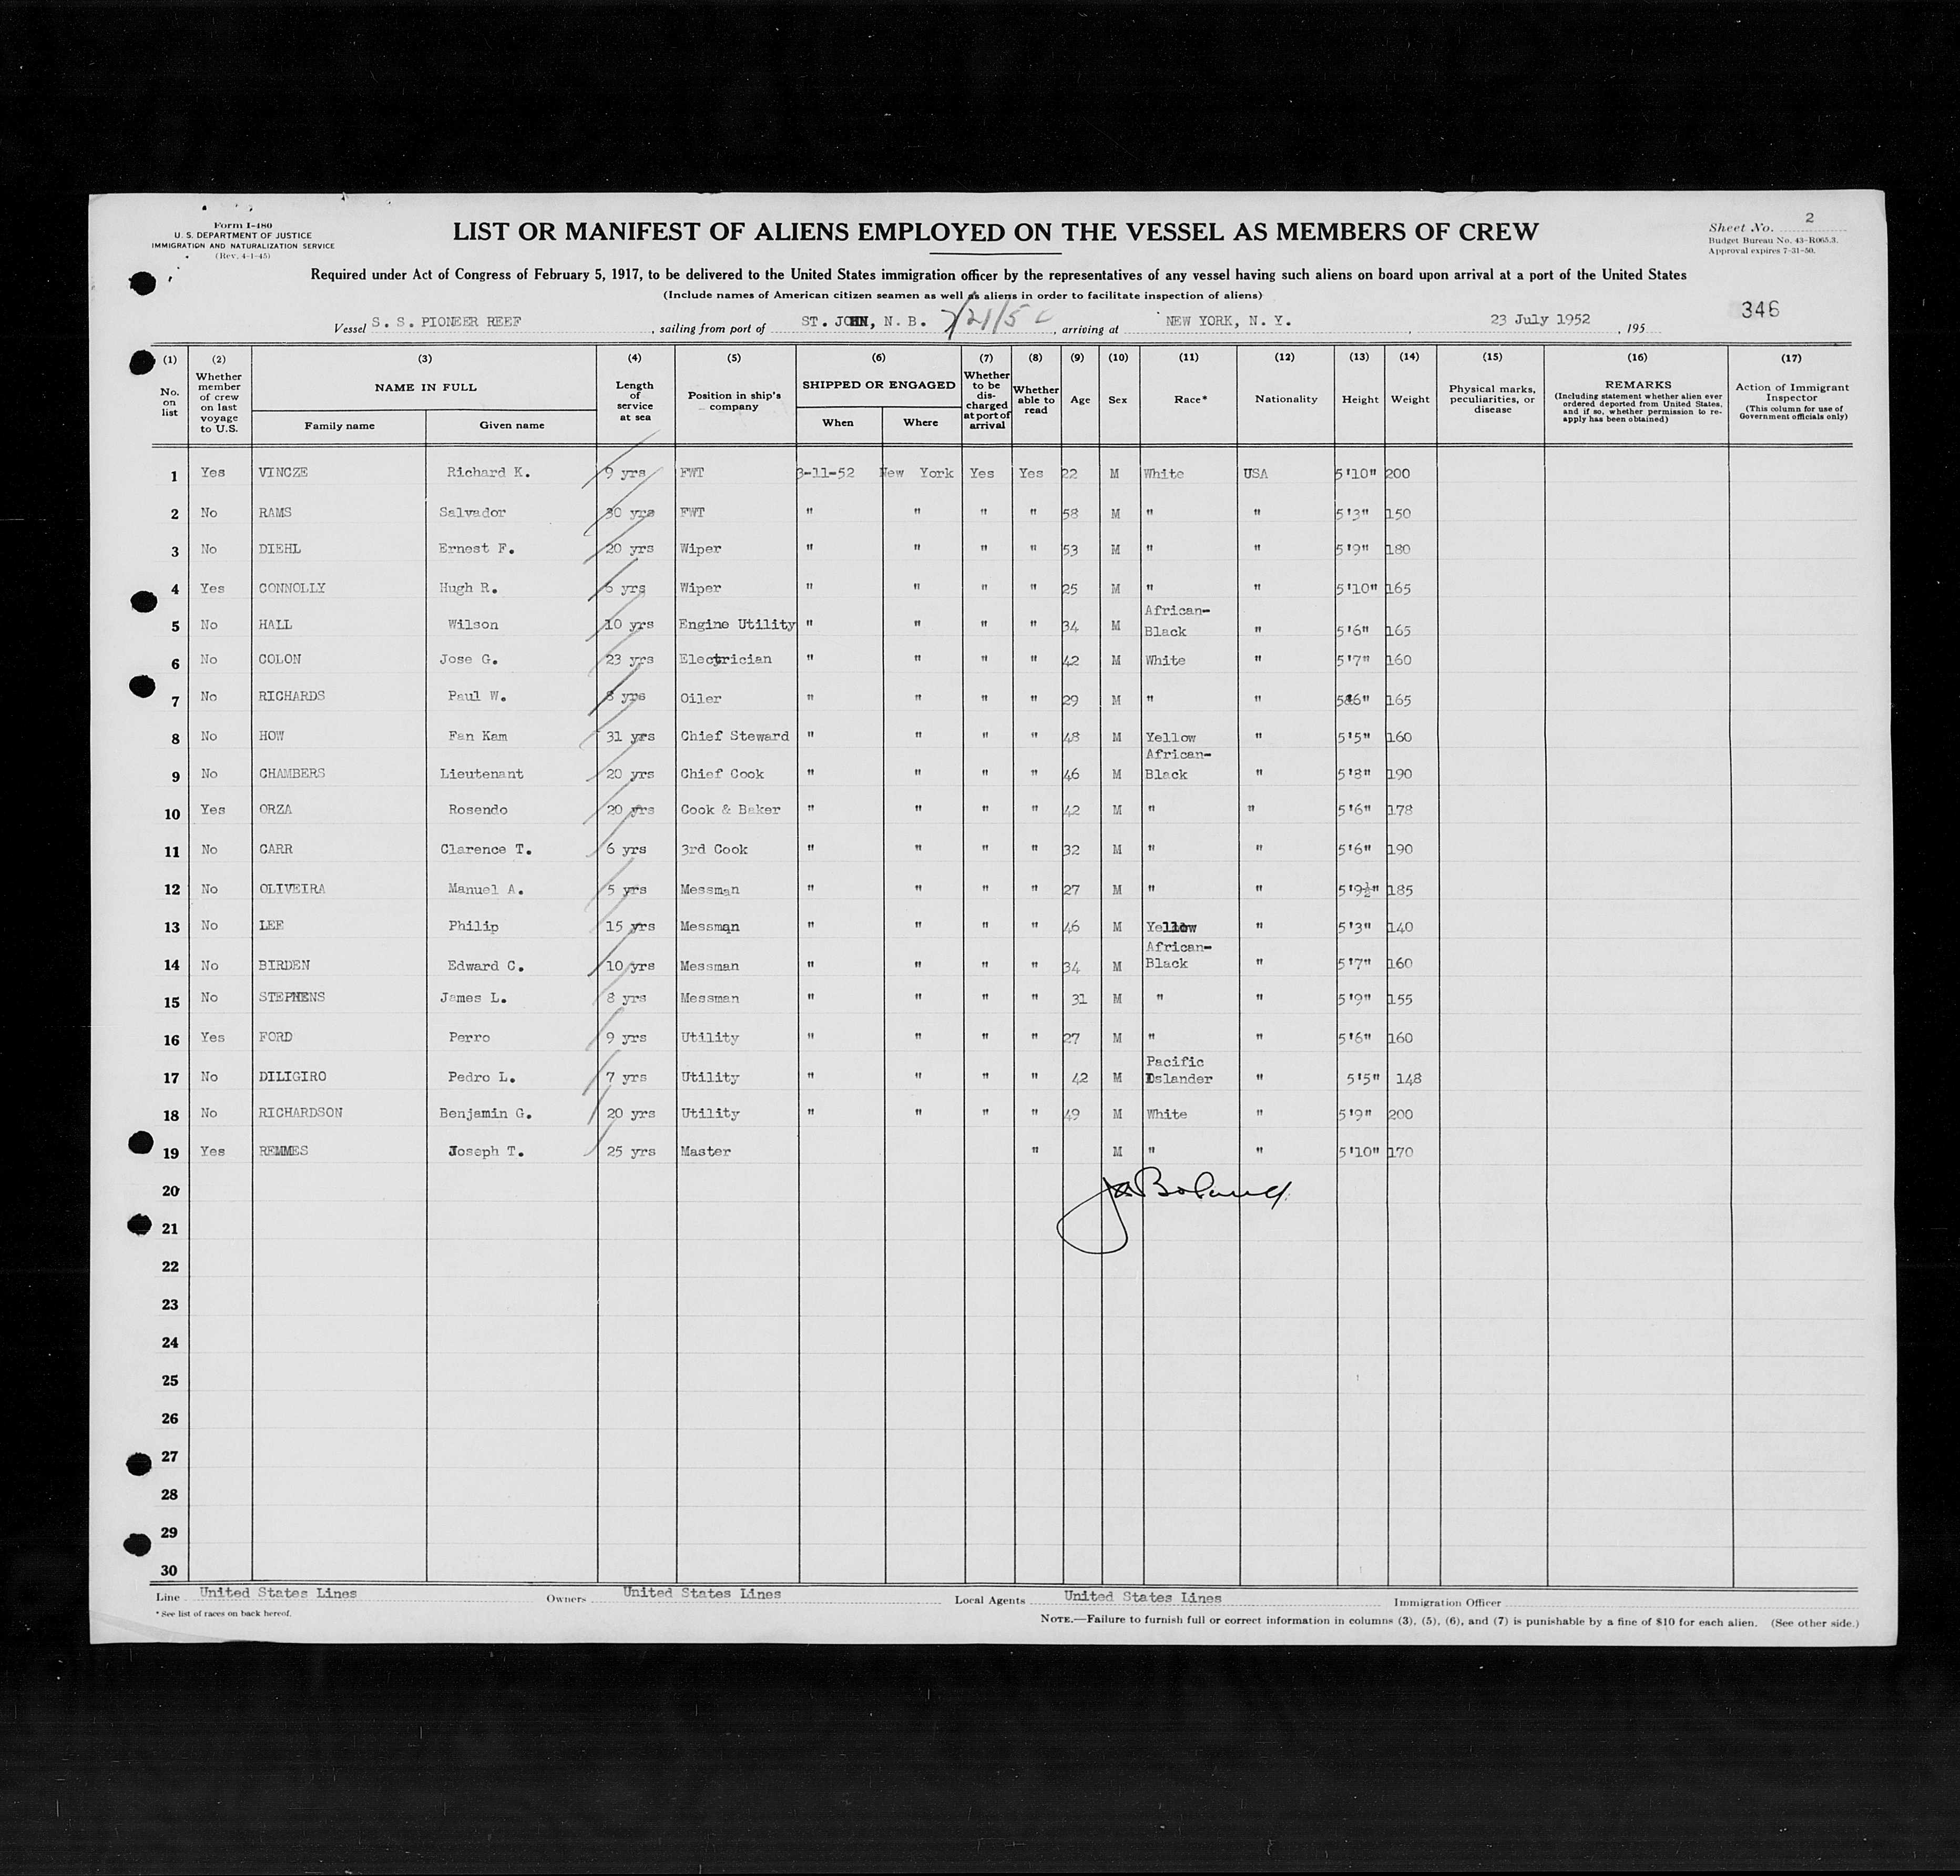 Form I-480
U. S. DEPARTMENT OF JUSTICE
IMMIGRATION AND NATURALIZATION SERVICE
(Rev. 4-1-45)
LIST OR MANIFEST OF ALIENS EMPLOYED ON THE VESSEL AS MEMBERS OF CREW
Sheet No. 2
Budget Bureau No. 43-R065.3.
Approval expires 7-31-50.
Required under Act of Congress of February 5, 1917, to be delivered to the United States immigration officer by the representatives of any vessel having such aliens on board upon arrival at a port of the United States
(Include names of American citizen seamen as well as aliens in order to facilitate inspection of aliens)
346
Vessel S. S. PIONEER REEF, sailing from port of ST. JOHN, N. B. 7/21/5, arriving at NEW YORK, N. Y., 23 July 1952, 195
(1) (2) (3) (4) (5) (6) (7) (8) (9) (10) (11) (12) (13) (14) (15) (16) (17)
No. on list
Whether member of crew on last voyage to U.S.
NAME IN FULL
Family name
Given name
Length of service at sea
Position in ship's company
SHIPPED OR ENGAGED
When
Where
Whether to be discharged at port of arrival
Whether able to read
Age
Sex
Race*
Nationality
Height
Weight
Physical marks, peculiarities, or disease
REMARKS
(Including statement whether alien ever ordered deported from United States, and if so, whether permission to reapply has been obtained)
Action of Immigrant Inspector
(This column for use of Government officials only)
1 Yes VINCZE Richard K. 9 yrs FWT 3-11-52 New York Yes Yes 22 M White USA 5'10" 200
2 No RAMS Salvador 30 yrs FWT " " " " 58 M " " 5'3" 150
3 No DIEHL Ernest F. 20 yrs Wiper " " " " 53 M " " 5'9" 180
4 Yes CONNOLLY Hugh R. yrs Wiper " " " " 25 M " " 5'10" 165
5 No HALL Wilson 10 yrs Engine Utility " " " " 34 M African-Black " 5'6" 165
6 No COLON Jose G. 23 yrs Electrician " " " " 42 M White " 5'7" 160
7 No RICHARDS Paul W. 8 yrs Oiler " " " " 29 M " " 5'6" 165
8 No HOW Fan Kam 31 yrs Chief Steward " " " " 48 M Yellow " 5'5" 160
9 No CHAMBERS Lieutenant 20 yrs Chief Cook " " " " 46 M African-Black " 5'8" 190
10 Yes ORZA Rosendo 20 yrs Cook & Baker " " " " 42 M " " 5'6" 178
11 No CARR Clarence T. 6 yrs 3rd Cook " " " " 32 M " " 5'6" 190
12 No OLIVEIRA Manuel A. 5 yrs Messman " " " " 27 M " " 5'9½" 185
13 No LEE Philip 15 yrs Messman " " " " 46 M Yellow " 5'3" 140
14 No BIRDEN Edward C. 10 yrs Messman " " " " 34 M African-Black " 5'7" 160
15 No STEPHENS James L. 8 yrs Messman " " " " 31 M " " 5'9" 155
16 Yes FORD Perro 9 yrs Utility " " " " 27 M " " 5'6" 160
17 No DILIGIRO Pedro L. 7 yrs Utility " " " " 42 M Pacific Islander " 5'5" 148
18 No RICHARDSON Benjamin G. 20 yrs Utility " " " " 49 M White " 5'9" 200
19 Yes REMMES Joseph T. 25 yrs Master " M " " 5'10" 170
20
21
22
23
24
25
26
27
28
29
30
Line United States Lines Owners United States Lines Local Agents United States Lines Immigration Officer
* See list of races on back hereof.
NOTE.—Failure to furnish full or correct information in columns (3), (5), (6), and (7) is punishable by a fine of $10 for each alien. (See other side.)